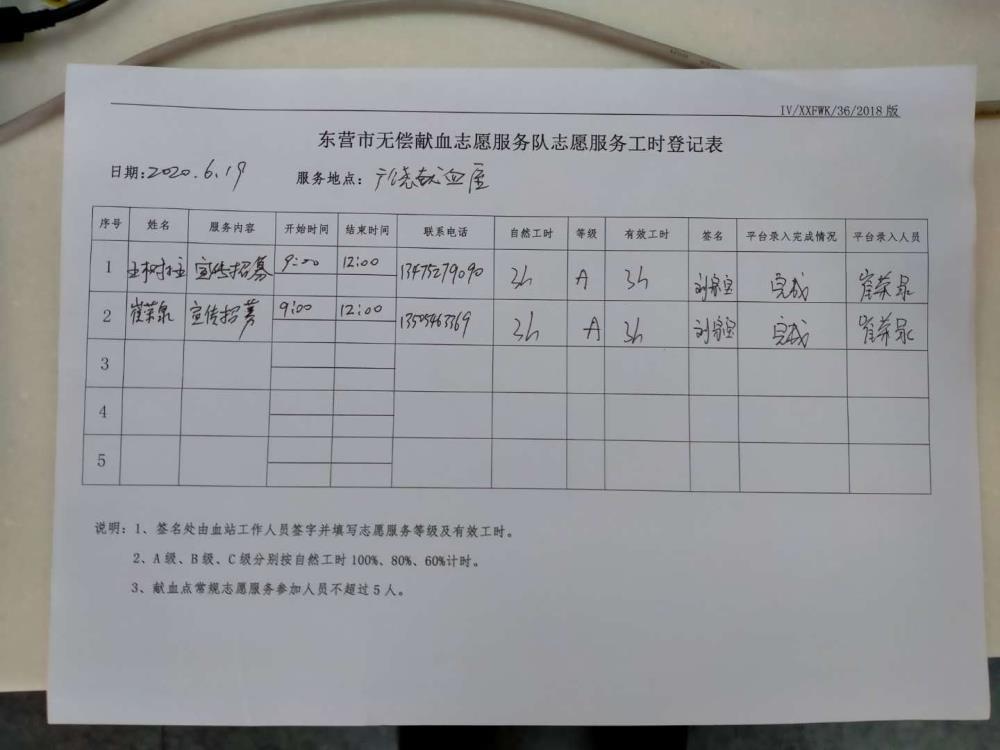 IV/XXFWK/36/2018 版
东营市无偿献血志愿服务队志愿服务工时登记表
日期:2020.6.19 服务地点: 广饶献血屋
序号 姓名 服务内容 开始时间 结束时间 联系电话 自然工时 等级 有效工时 签名 平台录入完成情况 平台录入人员
1 宣传招募 9:00 12:00 13475279090 3h A 3h 完成 崔荣泉
2 崔荣泉 宣传招募 9:00 12:00 3h A 3h 完成 崔荣泉
3
4
5
说明: 1、签名处由血站工作人员签字并填写志愿服务等级及有效工时。
2、A 级、B 级、C 级分别按自然工时 100%、80%、60%计时。
3、献血点常规志愿服务参加人员不超过 5 人。